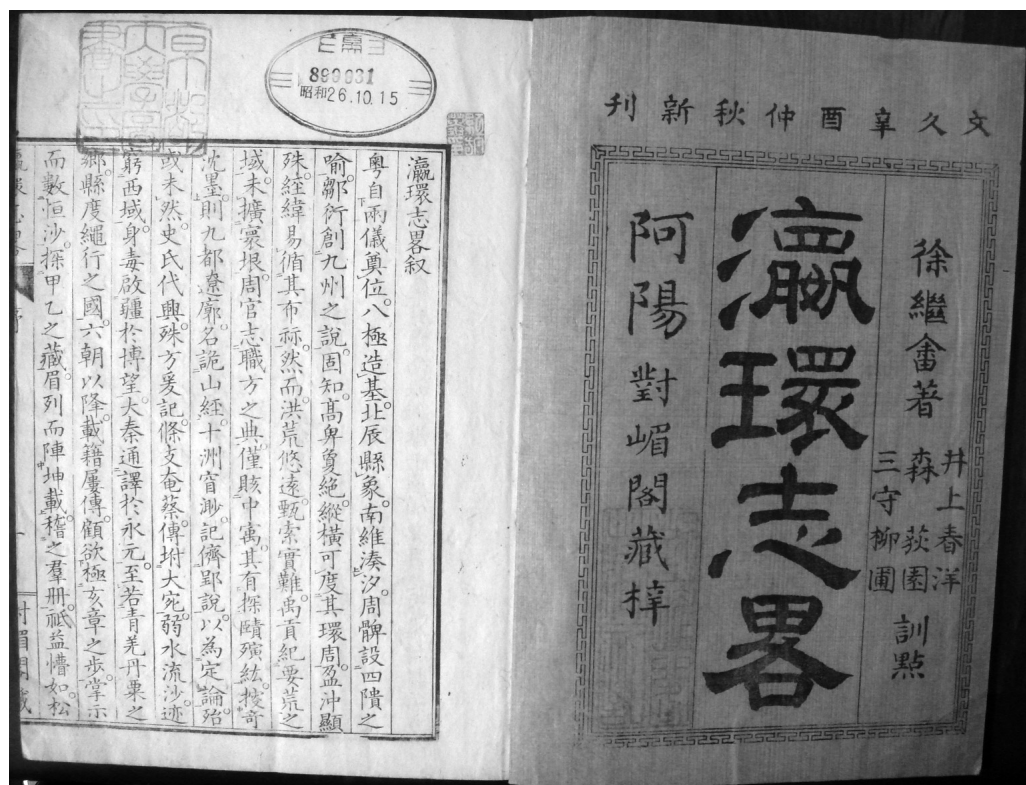 文久辛酉仲秋新刊
徐繼畬著
井上春洋
森荻園
三守柳圃
訓點
瀛環志畧
阿陽對嵋閣藏梓
899931
昭和26.10.15
瀛環志畧叙
粤自兩儀奠位。八極造基。北辰縣象。南維湊汐。周髀設四隤之
喻。鄒衍創九州之說。固知高卑夐絶。縱橫可度。其環周盈沖顯
殊。經緯易循。其布祘然而洪荒悠遠。甄索實難。禹貢紀要荒之
域。未擴寰垠。周官志職方之典。僅賅中寓。其有探賾殯紘。披奇
沈墨。則九都遼廓。名詭山經。十洲窅渺。記儕郢說。以為定論。殆
或未然。史氏代興。殊方爰記。條支奄蔡。傳坿大宛。弱水流沙。迹
窮西域。身毒啟疆於博望。大秦通譯於永元。至若青羌丹粟之
鄉。縣度繩行之國。六朝以降。載籍屢傳。顧欲極亥章之步。掌示
而數恒沙。探甲乙之藏。眉列而陣坤載。稽之羣冊。祇益懵如。松